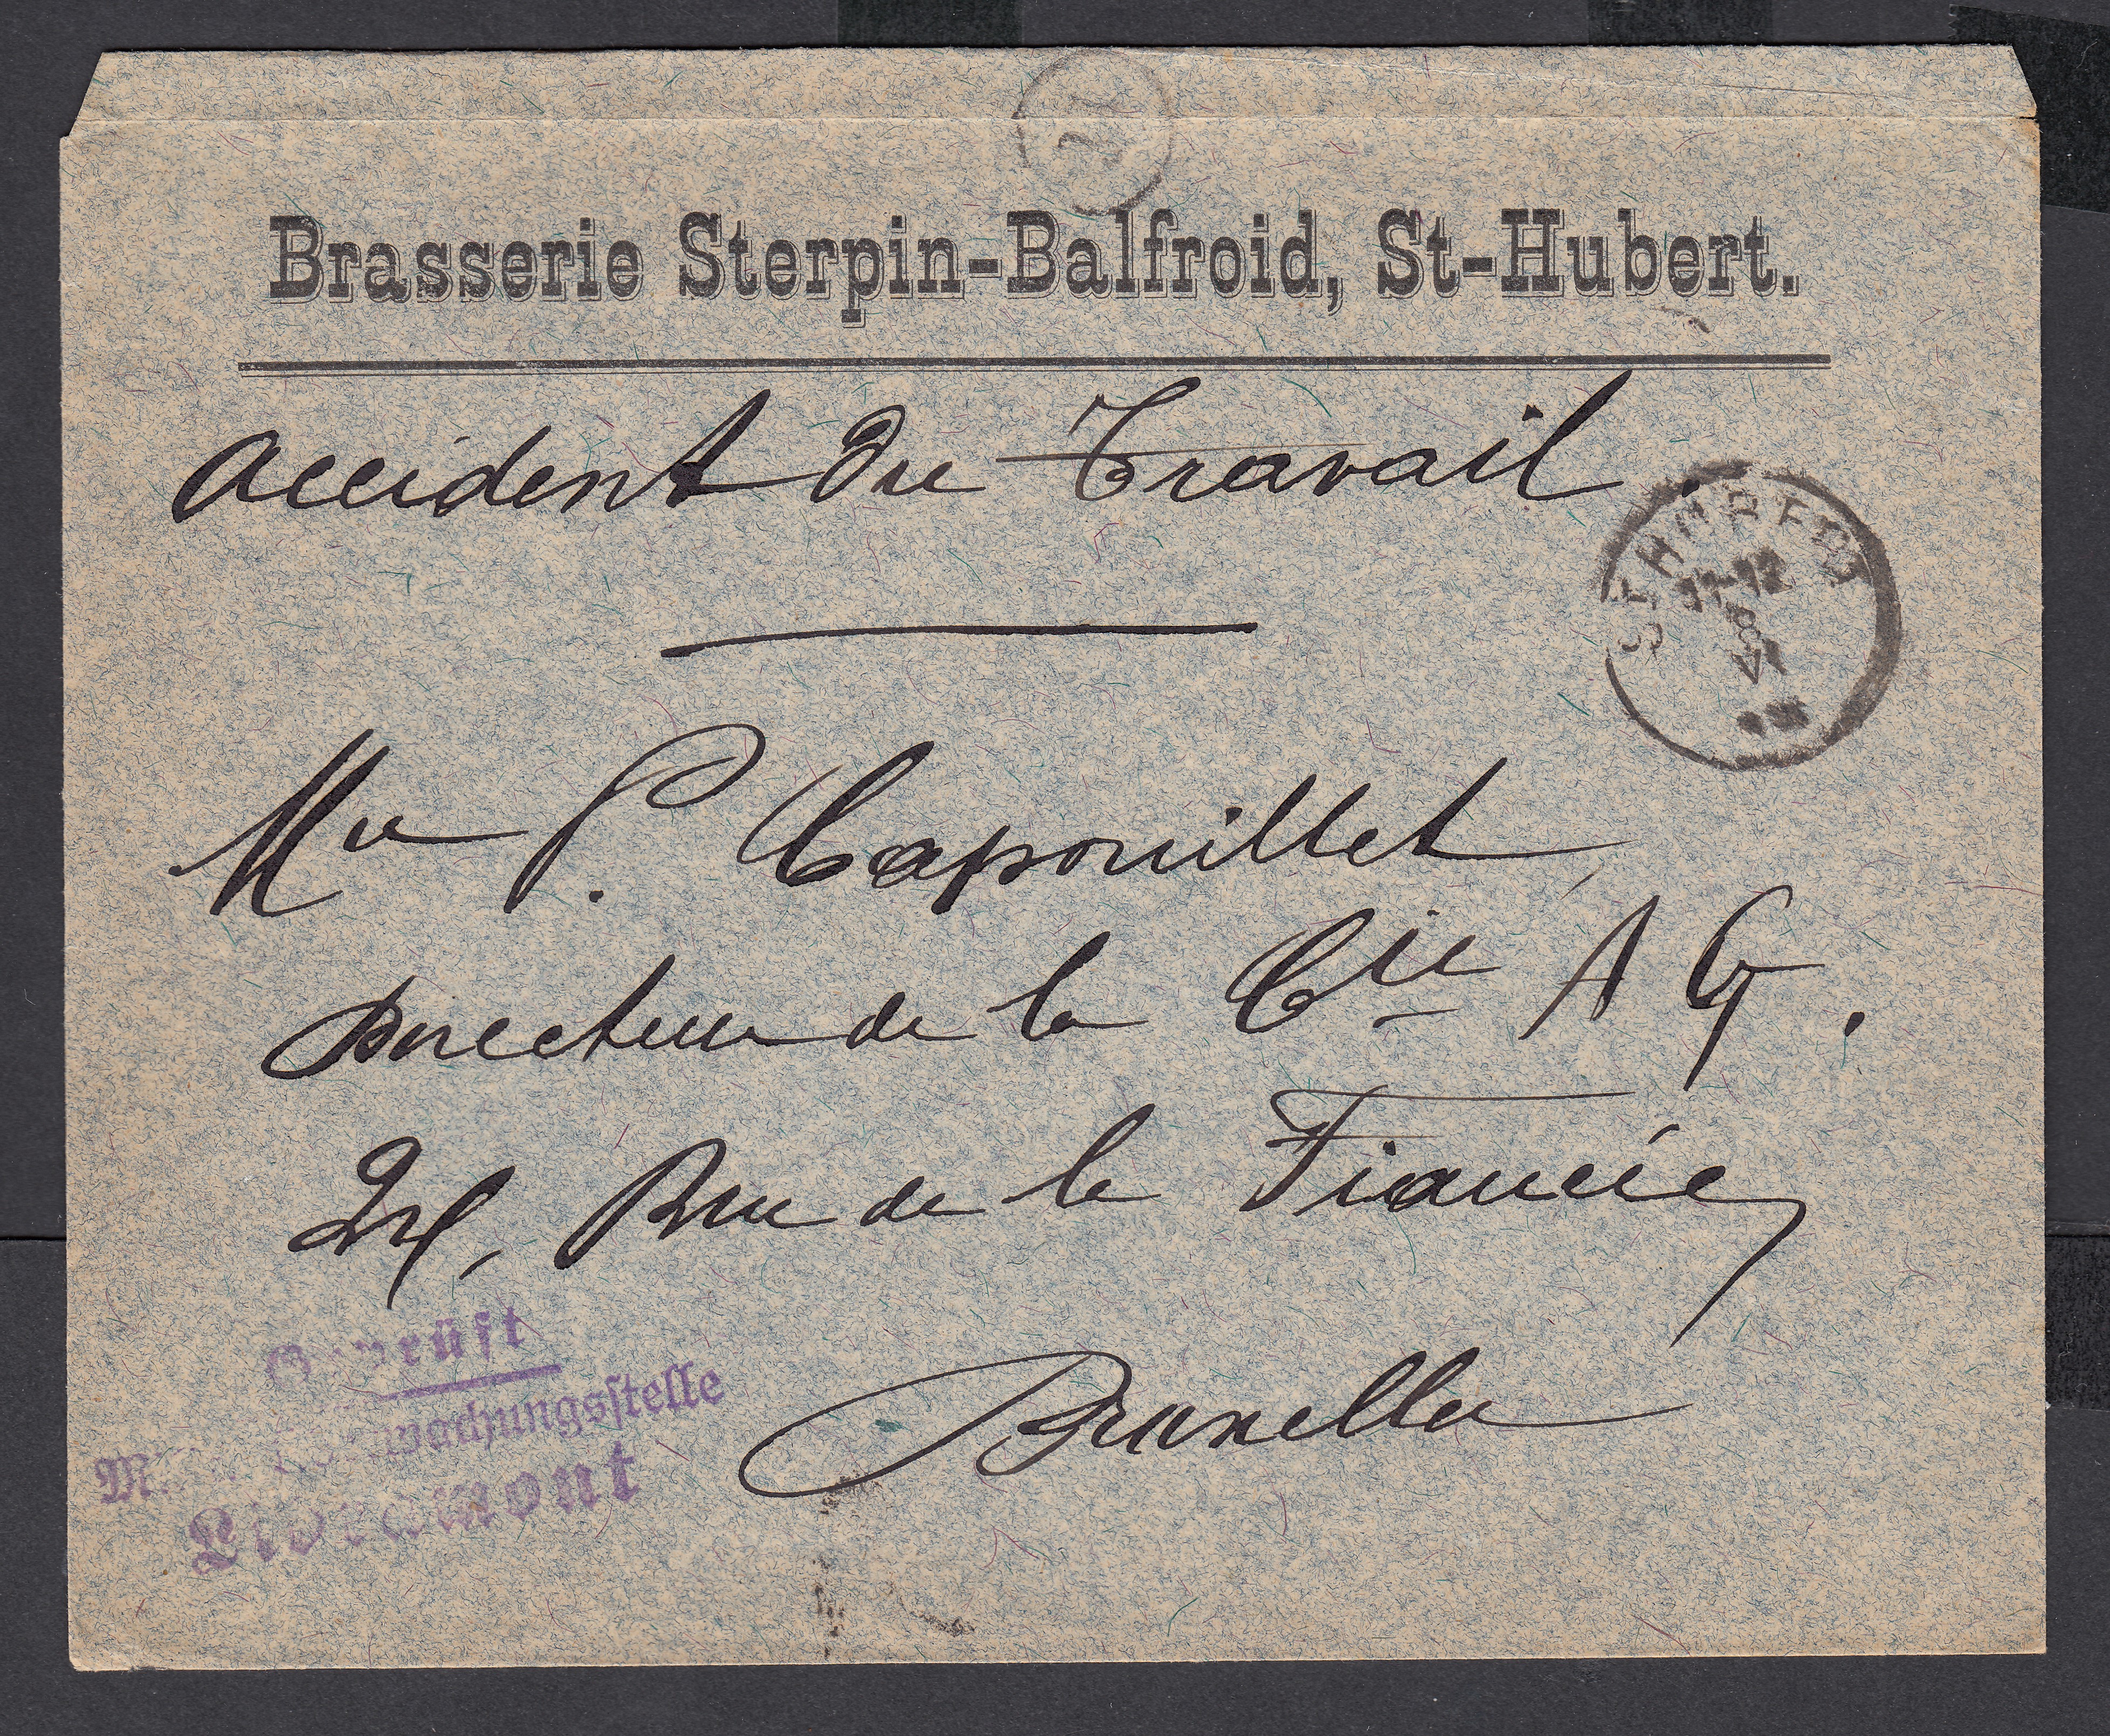 Brasserie Sterpin-Balfroid, St-Hubert.
Accident du Travail.
ST HUBERT
11-12
8
VI
Mr P. Capouillet,
Directeur de la Cie A G.
Rue de la Fiancée,
Bruxelles
Geprüft
Libramont